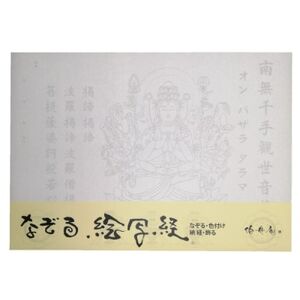 南無千手観世音
オン バザラ タラマ
羯諦羯諦
波羅羯諦 波羅僧羯
菩提薩婆訶 般若
なぞる 絵写経
なぞる・色付け
納経・飾る